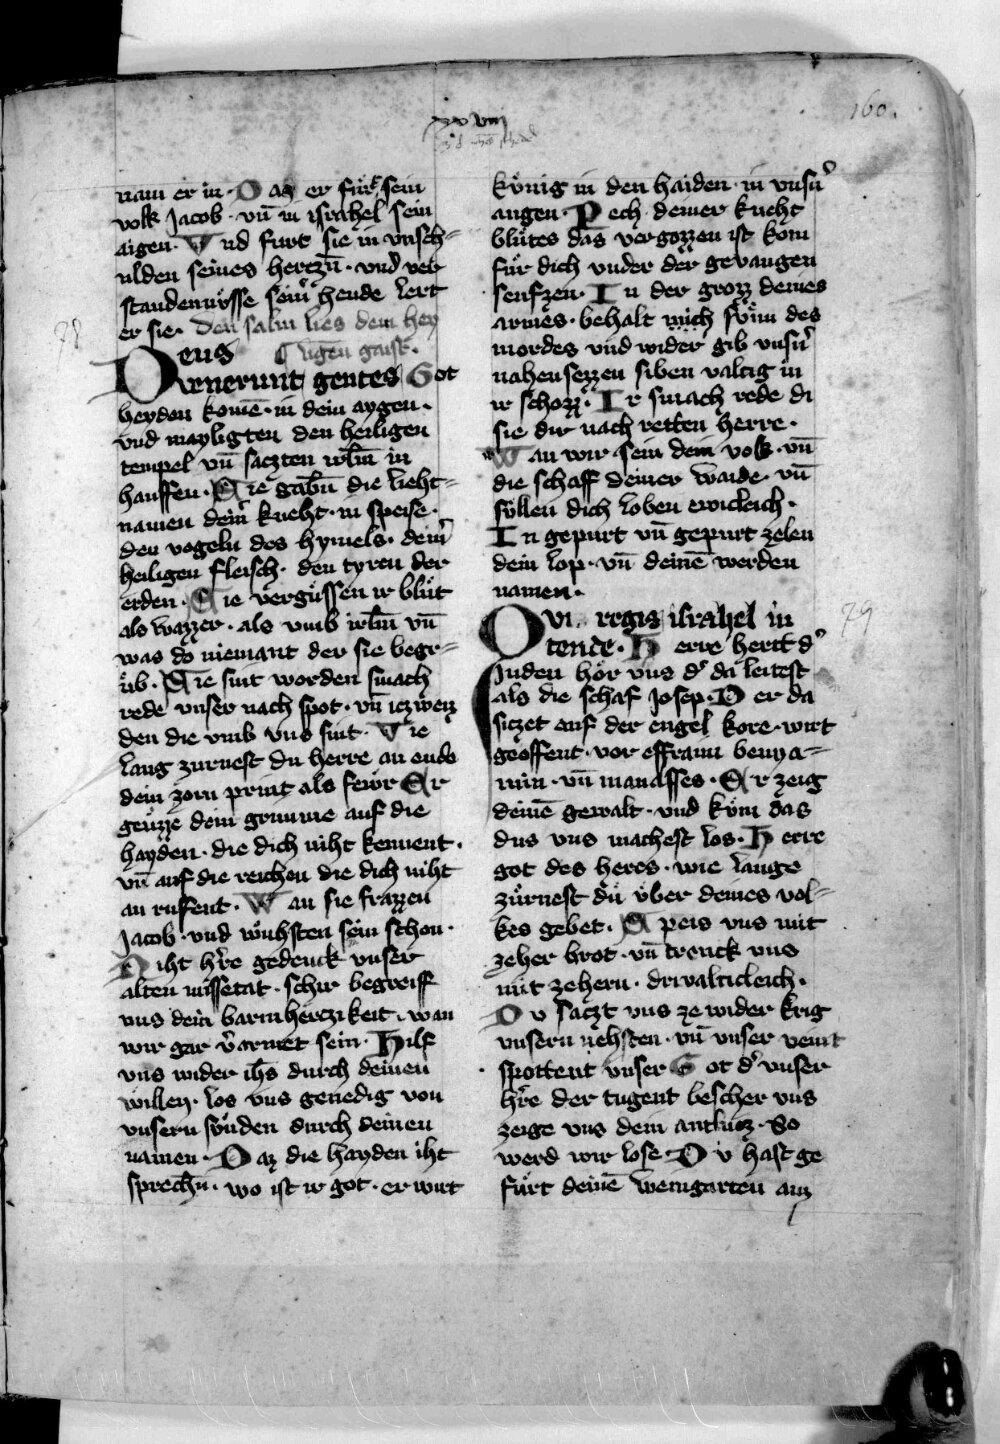 160.
xxviij
nam er in · Daz er fuͤr sein
volk Jacob · vn̄ in israhel sein
aigen · Vnd furt sie in vnsch=
ulden seines herczn̄ · vnd ver
standennuͤsse seinͬ hende lert
er sie · den salm lies dem hey
78
Deus ligen gaist.
venerunt gentes Got
heyden komē · in dein aygen ·
vnd mayligten den heiligen
tempel vn̄ saczten irl̄m in
hauffen · Sie gabn̄ die lieht=
namen deinͬ kneht · in speise ·
den vogeln des hymels · deinͬ
heiligen fleisch · den tyren der
erden · Sie verguͤssen ir bluͤt
als wazzer · als vmb irl̄m vn̄
was do niemant der sie begr=
uͤb · Sie sint worden smach
rede vnser nach spot · vn̄
den die vmb vns sint · Wie
lang zurnest du herre an ende
dein zorn print als fewr Er
geuͤzze dein grimme auf die
hayden · die dich niht kennent ·
vn̄ auf die reichen die dich niht
an rufent · Wan sie frazzen
Jacob · vnd wuͤhsten sein schon ·
Niht hr̄e gedenck vnser
alten missetat · schir begreiff
vns dein barmherczikeit · wan
wir gar v̄armet sein · Hilf
vns wider ih̄s durch deinen
willen · los vns genedig von
vnsern suͤnden durch deinen
namen · Daz die hayden iht
sprechn̄ · wo ist ir got · er wirt
kuͤnig in den haiden · in vnsnͬ
augen · Rech · deiner kneht
bluͤtes das vergozzen ist kom
fuͤr dich vnder der gevangen
senfzen · In der grozz deines
armes · behalt mich suͤm des
mordes vnd wider gib vnsnͬ
nahensezzen siben valtig in
ir schozz · Ir smach rede di
sie dir nach retten herre ·
Wan wir sein dein volk · vn̄
die schaff deiner waide · vn̄
suͤllen dich loben ewicleich ·
In gepurt vn̄ gepurt zelen
dein lop · vn̄ deinē werden
namen ·
79
Qvi regis israhel in
tende · Herre hertt dͬ
Juden hoͤr vns dͬ da leitest
als die schaf Josep · Der da
siczet auf der engel kore · wirt
geoffent · vor effraim benya=
min · vn̄ manasses · Er zeig
deinē gewalt · vnd kuͤm das
dus vns machest los · Herre
got des heres · wie lange
zuͤrnest du uͤber deines vol=
kes gebet · Speis vns mit
zeher brot · vn̄ trenck vns
mit zehern · drivalticleich ·
Du saczt vns ze wider krig
vnsern nehsten · vn̄ vnser veint
spottent vnser Got dͬ vnser
hr̄e der tugent bescher vns
zeige vns dein antlucz · So
werd wir lose · Du hast ge
fuͤrt deinē weingarten auz